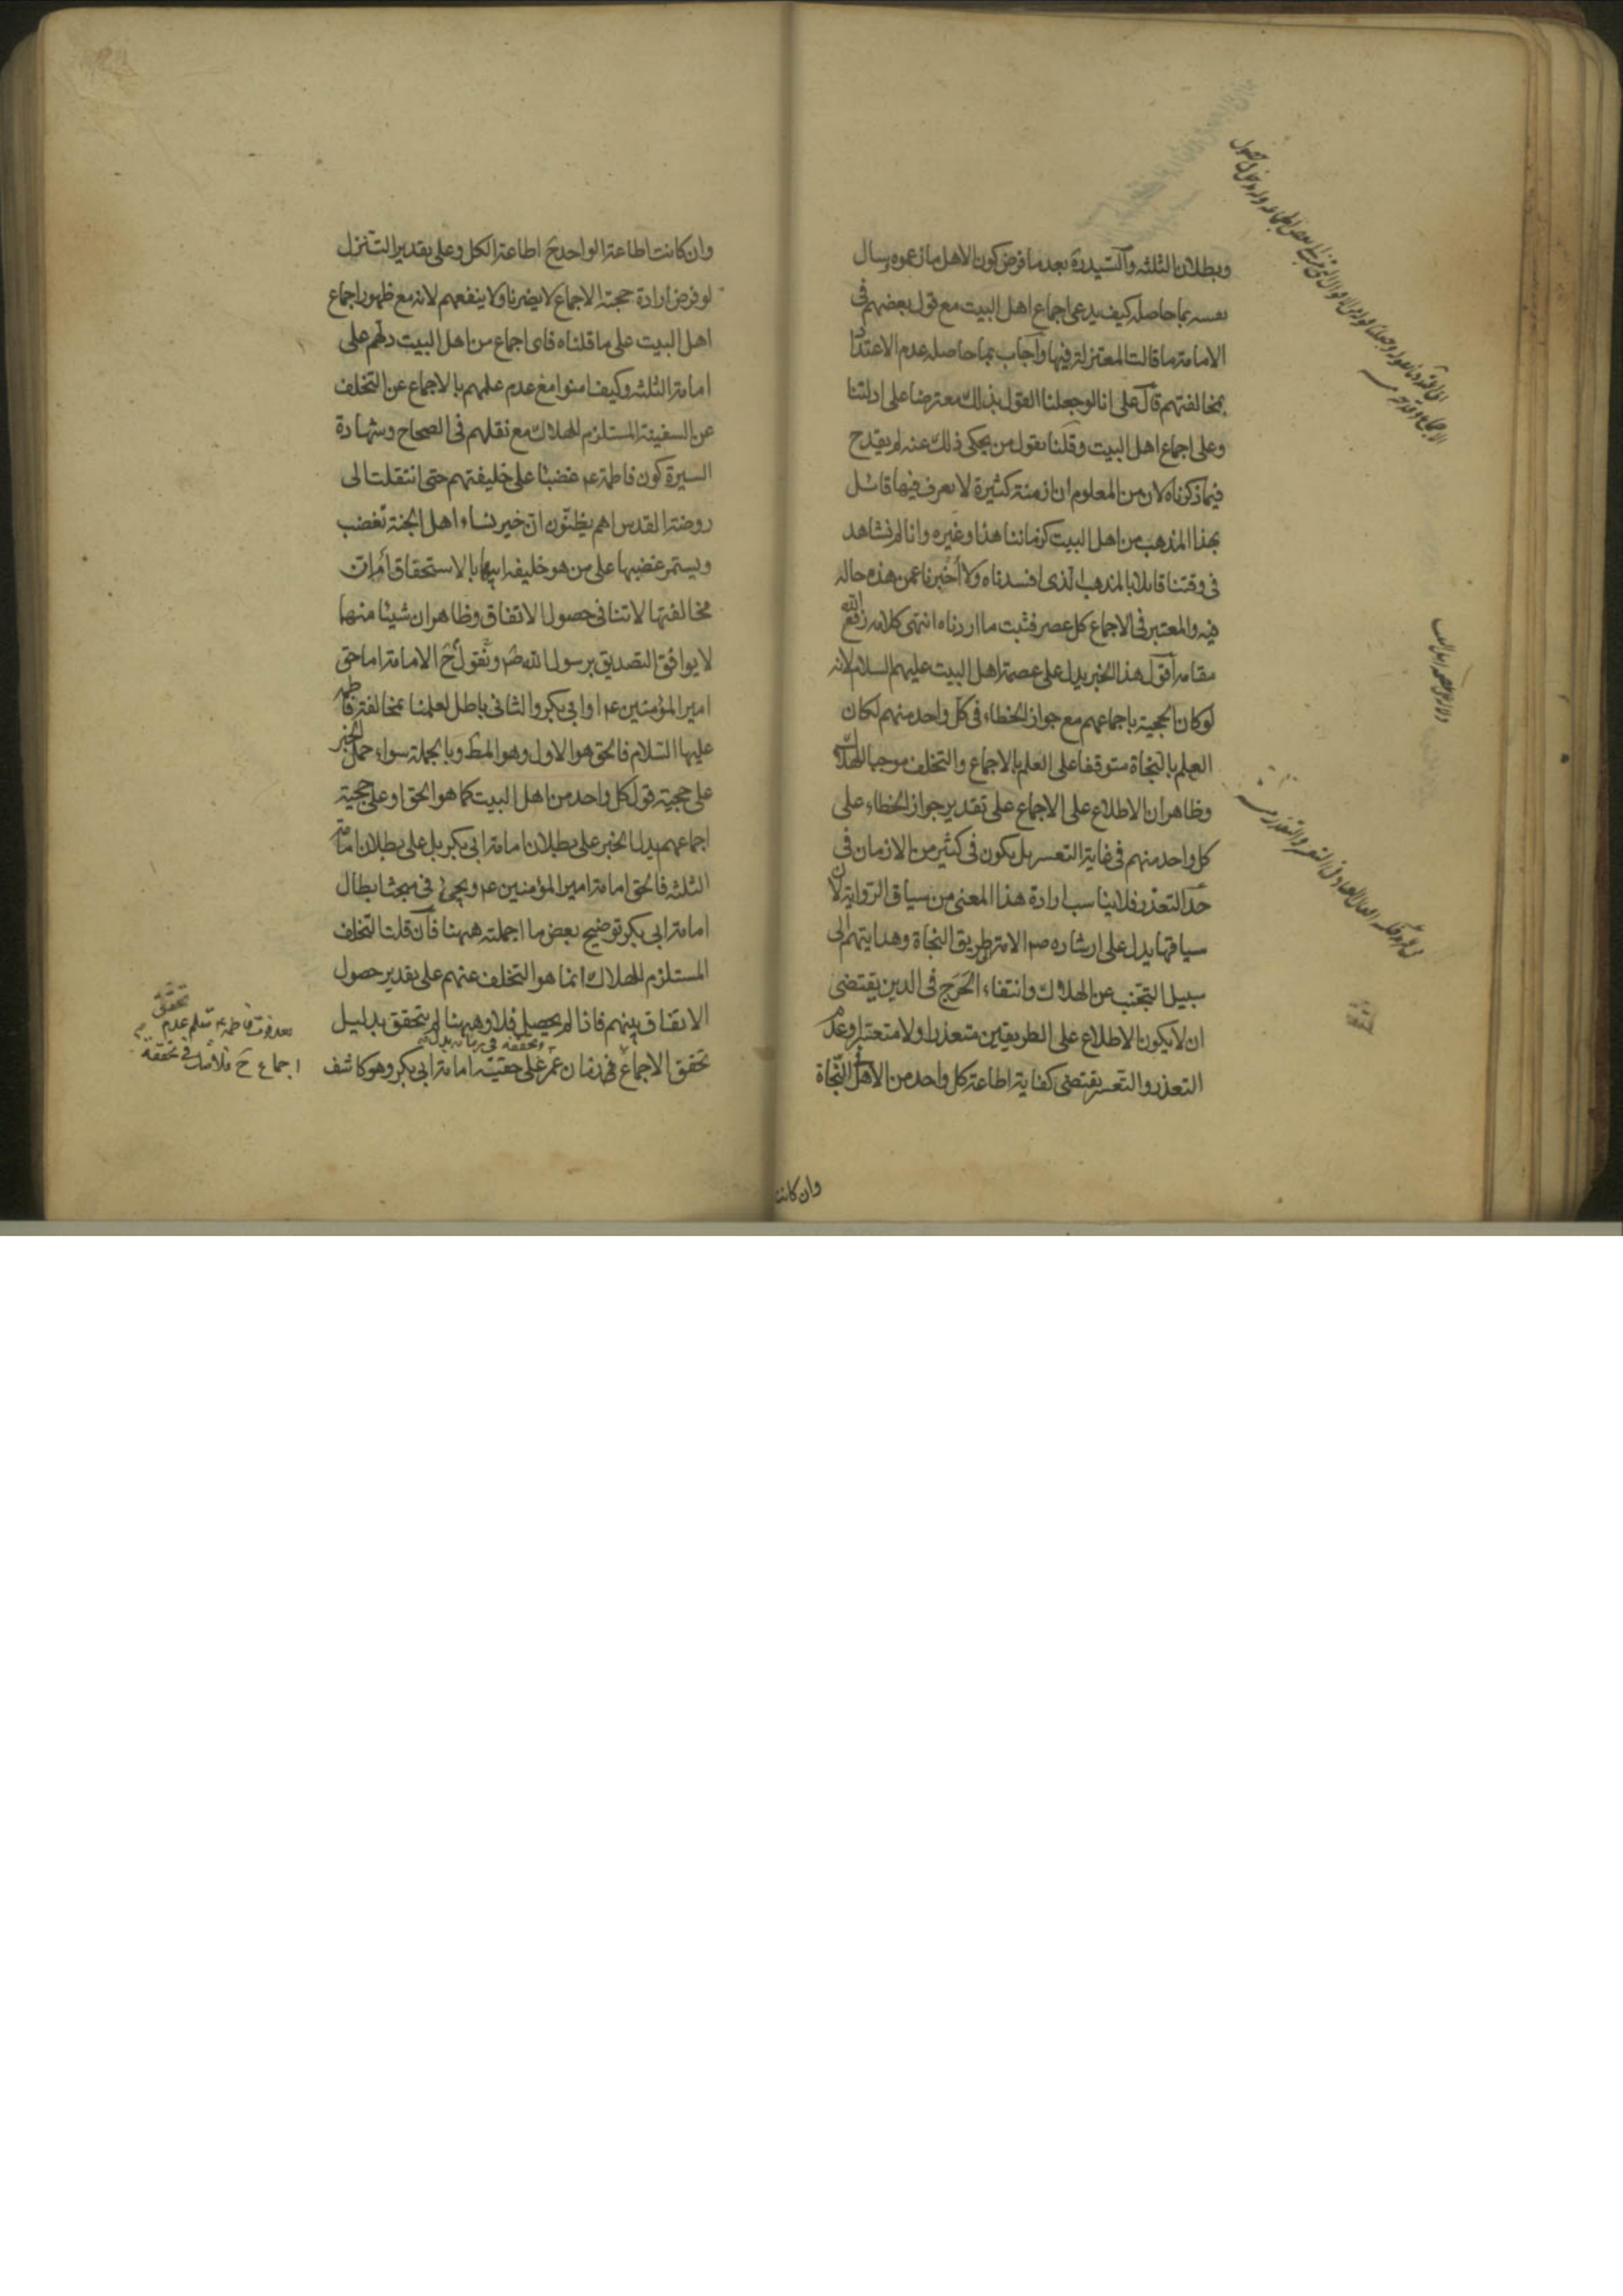 وبطلان الثلثه والسيدره بعدما فرض كون الاهل ما زعموه يسال
نفسه بما حاصله كيف يدعى اجماع اهل البيت مع قول بعضهم فى
الامامة ما قالت المعتزلة فيها واجاب بما حاصله عدم الاعتداد
بمخالفتهم قال على انا لو جعلنا القول بذلك معترضا على ادلتنا
وعلى اجماع اهل البيت وقلنا بقول من يحكى ذلك عنه لم يقدح
فيما ذكرناه لان من المعلوم ان ازمنة كثيرة لا يعرف فيها قائل
بهذا المذهب من اهل البيت كزماننا هذا وغيره وانا لم نشاهد
فى وقتنا قائلا بالمذهب الذى افسدناه ولا أخبرنا عمن هذه حاله
فيه والمعتبر فى الاجماع كل عصر فثبت ما اردناه انتهى كلامه رفع الله
مقامه اقول هذا الخبر يدل على عصمة اهل البيت عليهم السلام لانه
لو كان الحجية باجماعهم مع جواز الخطاء فى كل واحد منهم لكان
العلم بالنجاة متوقفا على العلم بالاجماع والتخلف موجبا للهلاك
وظاهر ان الاطلاع على الاجماع على تقدير جواز الخطاء على
كل واحد منهم فى غاية التعسر بل يكون فى كثير من الازمان فى
حد التعذر فلا يناسب ارادة هذا المعنى من سياق الرواية لان
سياقها يدل على ارشاده ص الامة طريق النجاة وهدايتهم الى
سبيل التجنب عن الهلاك وانتفاء الحَرَج فى الدين يقتضى
ان لا يكون الاطلاع على الطريقين متعذرا ولا متعسرا وعدم
التعذر والتعسر يقتضى كفاية اطاعة كل واحد من الاهل فى النجاة
وان كانت
وان كانت اطاعة الواحد ح اطاعة الكل وعلى تقدير التنزل
لو فرض ارادة حجية الاجماع لا يضرنا ولا ينفعهم لانه مع ظهور اجماع
اهل البيت على ما قلناه فاى اجماع من اهل البيت دلهم على
امامة الثلثه وكيف امنوا مع عدم علمهم بالاجماع عن التخلف
عن السفينة المستلزم للهلاك مع نقلهم فى الصحاح وشهادة
السيرة كون فاطمة ع غضبى على خليفتهم حتى انتقلت الى
روضة القدس اهم يظنون ان خير نساء اهل الجنة تغضب
ويستمر غضبها على من هو خليفة ابيها بالاستحقاق أم ان
مخالفتها لا تنافى حصول الاتفاق وظاهر ان شيئا منها
لا يوافق التصديق برسول الله ص ونقول ح الامامة اما حق
امير المؤمنين ع او ابى بكر والثانى باطل لعلمنا بمخالفة فاطمه
عليها السلام فالحق هو الاول وهو المط وبالجملة سواء حمل الخبر
على حجية قول كل واحد من اهل البيت كما هو الحق او على حجية
اجماعهم يدل الخبر على بطلان امامة ابى بكر بل على بطلان امامة
الثلثه فالحق امامة امير المؤمنين ع ويجئ فى مبحث ابطال
امامة ابى بكر توضيح بعض ما اجملته ههنا فان قلت التخلف
المستلزم للهلاك انما هو التخلف عنهم على تقدير حصول
الاتفاق بينهم فاذا لم يحصل فلا وههنا لم يتحقق بدليل
وتحققه فى زمانه يدل
تحقق الاجماع فى زمان عمر على حقية امامة ابى بكر وهو كاشف
تحقق
بعد فوت فاطمة ع سلم عدم
اجماع ح فلا شك فى تحققه